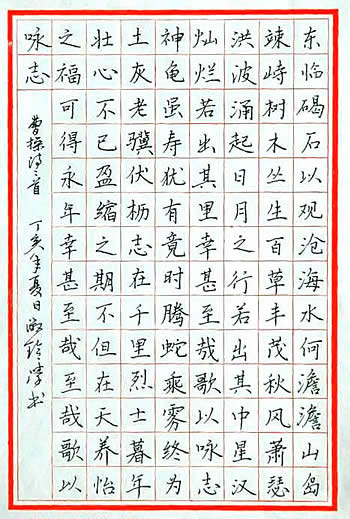 东临碣石以观沧海水何澹澹山岛
竦峙树木丛生百草丰茂秋风萧瑟
洪波涌起日月之行若出其中星汉
灿烂若出其里幸甚至哉歌以咏志
神龟虽寿犹有竟时腾蛇乘雾终为
土灰老骥伏枥志在千里烈士暮年
壮心不已盈缩之期不但在天养怡
之福可得永年幸甚至哉至哉歌以
咏志
曹操诗二首 丁亥年夏日